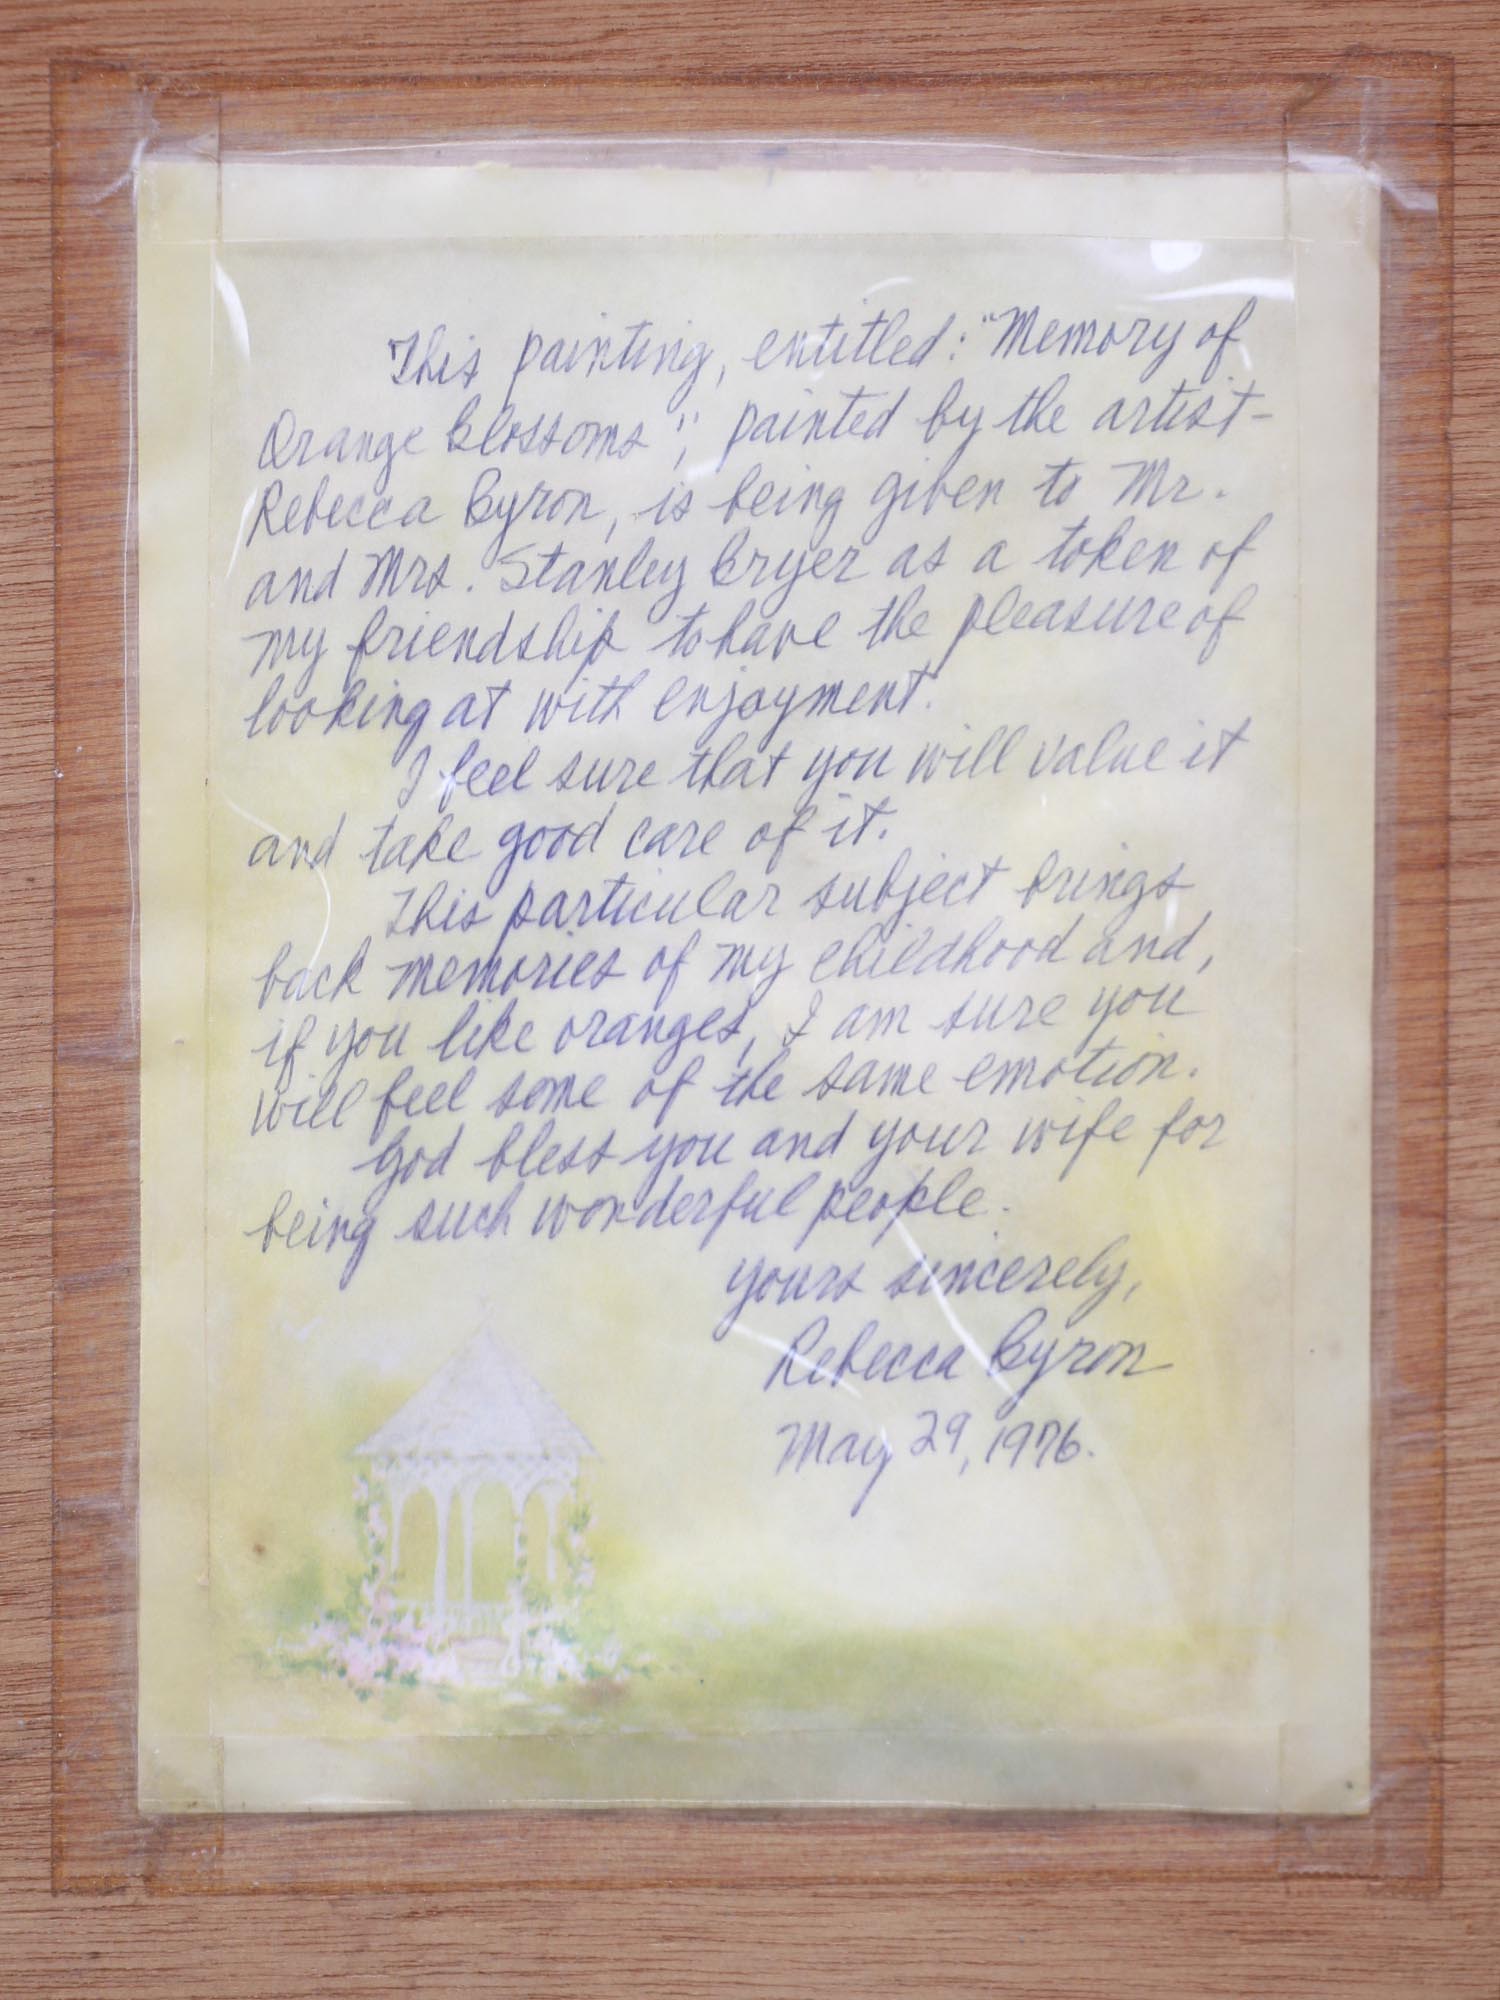 This painting, entitled: "Memory of
Orange Blossoms", painted by the artist-
Rebecca Byron, is being given to Mr.
and Mrs. Stanley Bryer as a token of
my friendship to have the pleasure of
looking at with enjoyment.
I feel sure that you will value it
and take good care of it.
This particular subject brings
back memories of my childhood and,
if you like oranges, I am sure you
will feel some of the same emotion.
God bless you and your wife for
being such wonderful people.
yours sincerely,
Rebecca Byron
May 29, 1976.